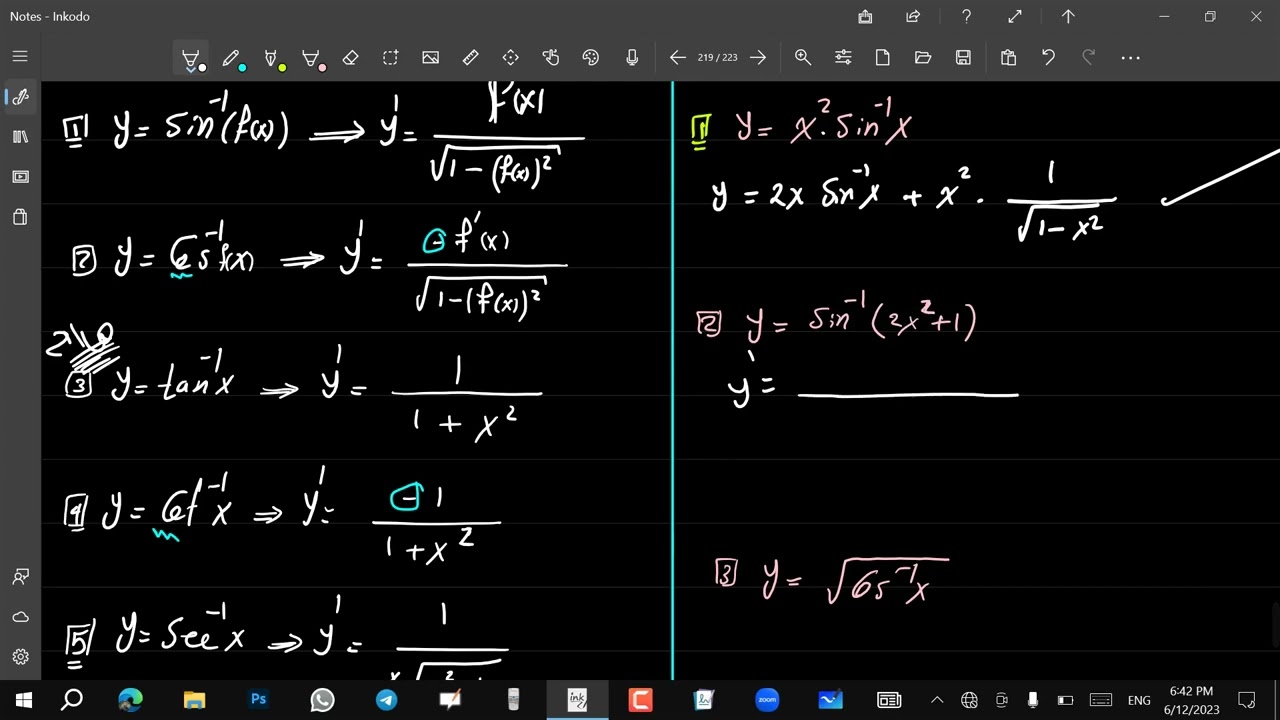 Notes - Inkodo
219 / 223
[1] y = Sin⁻¹(f(x)) ⟹ y' = f'(x) / √(1 - (f(x))²)
[2] y = Cos⁻¹f(x) ⟹ y' = - f'(x) / √(1-(f(x))²)
[3] y = tan⁻¹x ⟹ y' = 1 / (1 + x²)
[4] y = Cot⁻¹x ⟹ y' = -1 / (1+x²)
[5] y = Sec⁻¹x ⟹ y' = 1
[1] y = x². Sin⁻¹x
y = 2x Sin⁻¹x + x² . 1 / √(1-x²)
[2] y = Sin⁻¹(2x²+1)
y' =
[3] y = √(Cos⁻¹x)
Ps
ink
zoom
ENG
6:42 PM
6/12/2023